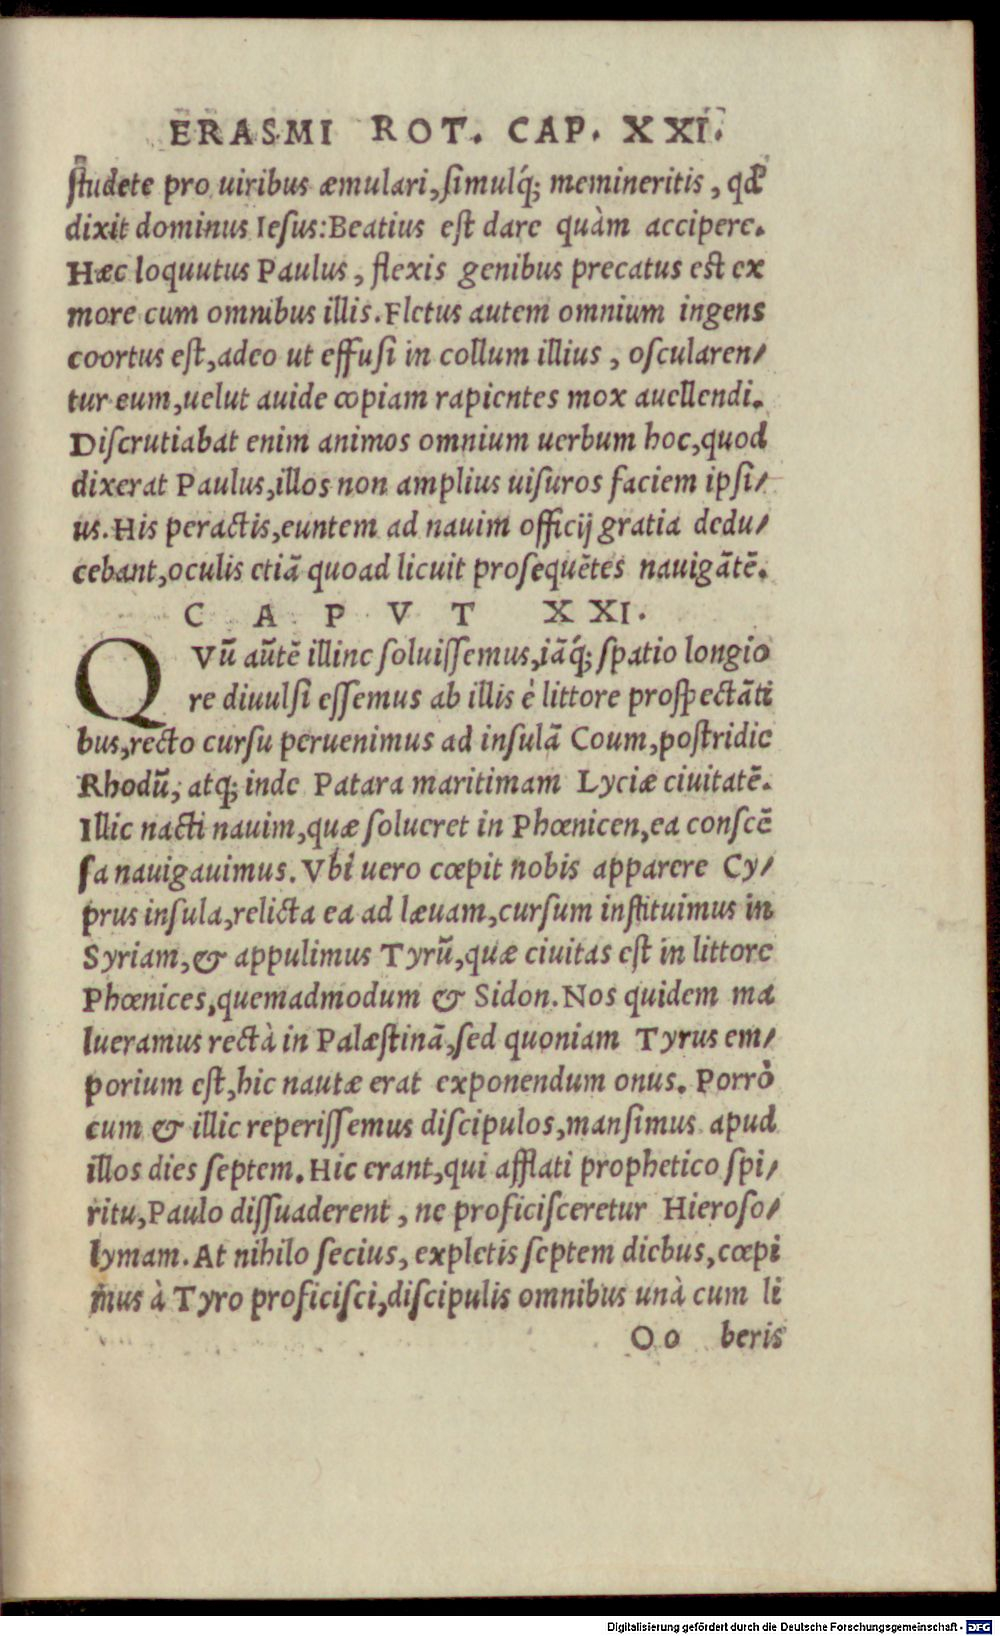 ERASMI ROT. CAP. XXI.
ſtudete pro uiribus æmulari, ſimulq́; memineritis, qđ
dixit dominus Ieſus: Beatius eſt dare quàm accipere.
Hæc loquutus Paulus, flexis genibus precatus eſt ex
more cum omnibus illis. Fletus autem omnium ingens
coortus eſt, adeo ut effuſi in collum illius, oſcularen/
tur eum, uelut auide copiam rapientes mox auellendi.
Diſcrutiabat enim animos omnium uerbum hoc, quod
dixerat Paulus, illos non amplius uiſuros faciem ipſi/
us. His peractis, euntem ad nauim officij gratia dedu/
cebant, oculis etiā quoad licuit proſequētes nauigātē.
CAPVT XXI.
QVū aūtē illinc ſoluiſſemus, iāq́; ſpatio longio
re diuulſi eſſemus ab illis è littore proſpectāti
bus, recto curſu peruenimus ad inſulā Coum, poſtridie
Rhodū, atq; inde Patara maritimam Lyciæ ciuitatē.
Illic nacti nauim, quæ ſolueret in Phœnicen, ea conſcē
ſa nauigauimus. Vbi uero cœpit nobis apparere Cy/
prus inſula, relicta ea ad læuam, curſum inſtituimus in
Syriam, & appulimus Tyrū, quæ ciuitas eſt in littore
Phœnices, quemadmodum & Sidon. Nos quidem ma
lueramus rectà in Palæſtinā, ſed quoniam Tyrus em/
porium eſt, hic nautæ erat exponendum onus. Porrò
cum & illic reperiſſemus diſcipulos, manſimus apud
illos dies ſeptem. Hic erant, qui afflati prophetico ſpi/
ritu, Paulo diſſuaderent, ne proficiſceretur Hieroſo/
lymam. At nihilo ſecius, expletis ſeptem diebus, cœpi
mus à Tyro proficiſci, diſcipulis omnibus unà cum li
Oo beris
Digitalisierung gefördert durch die Deutsche Forschungsgemeinschaft - DFG